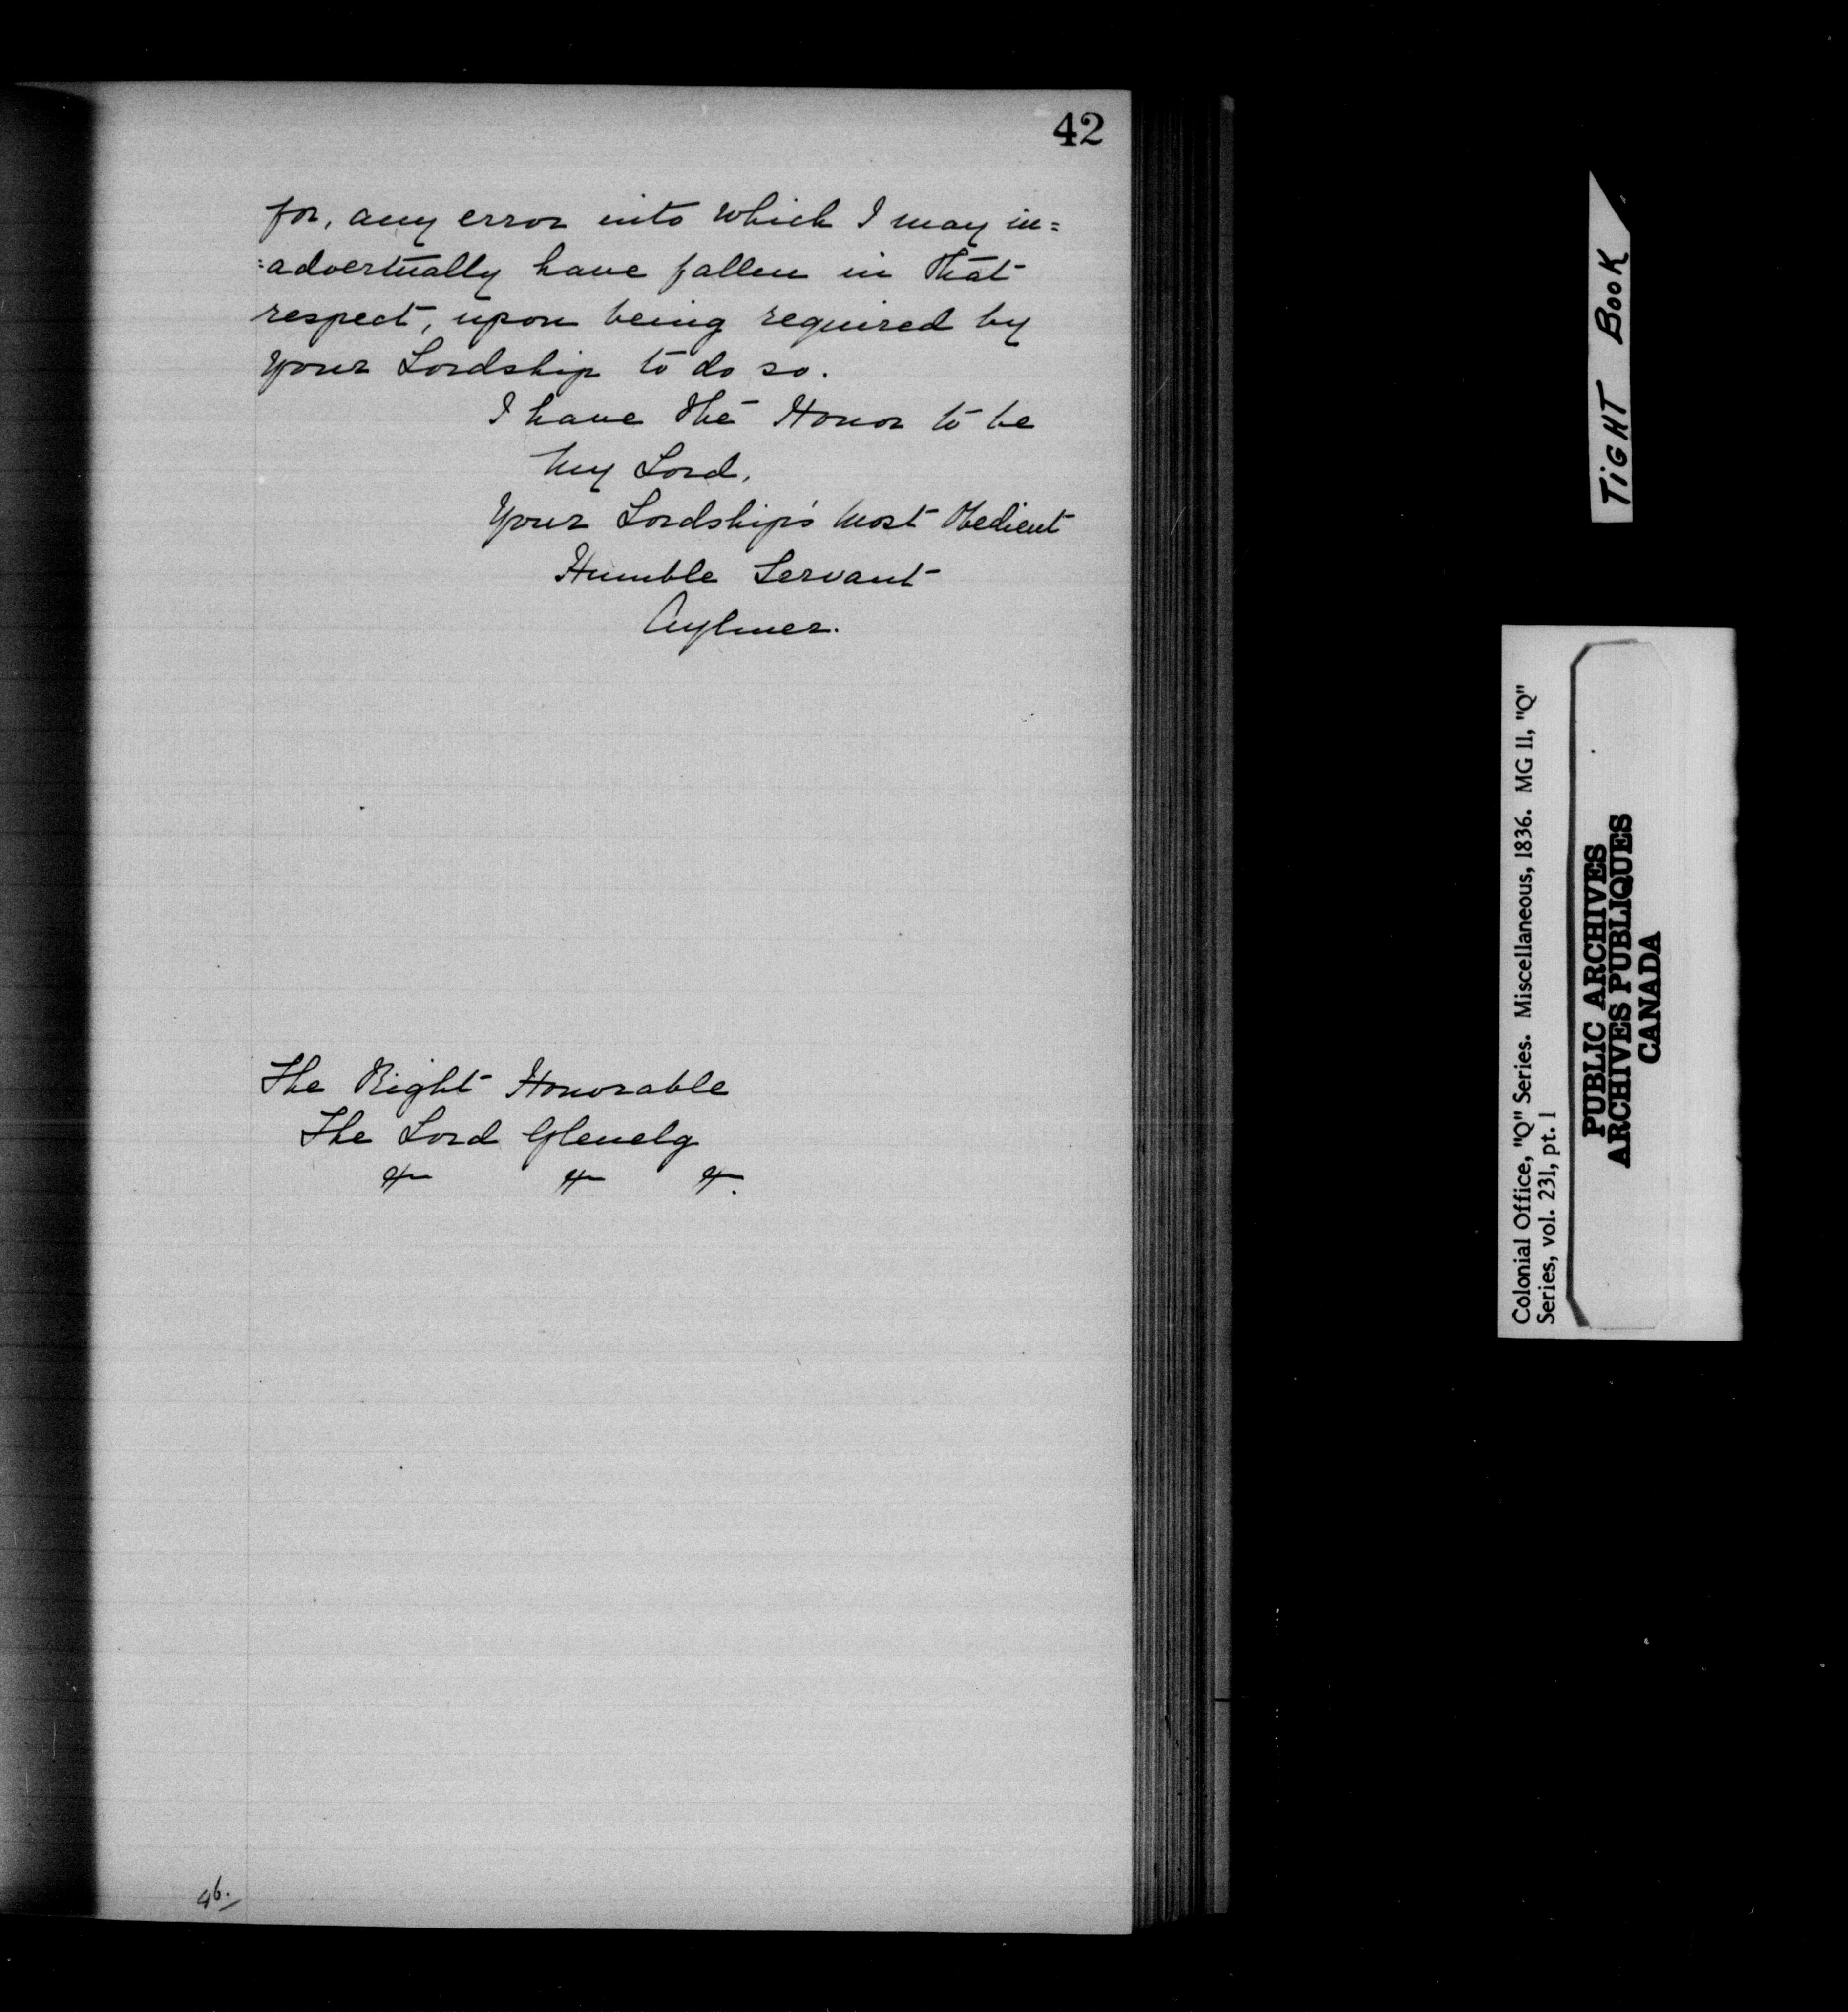 42
for, any error into which I may in=
=advertually have fallen in that
respect, upon being required by
your Lordship to do so.
I have the Honor to be
My Lord,
Your Lordship's Most Obedient
Humble Servant
Aylmer.
The Right Honorable
The Lord Glenelg
&c &c &c.
46.
TIGHT BOOK
Colonial Office, "Q" Series. Miscellaneous, 1836. MG 11, "Q"
Series, vol. 231, pt. 1
PUBLIC ARCHIVES
ARCHIVES PUBLIQUES
CANADA